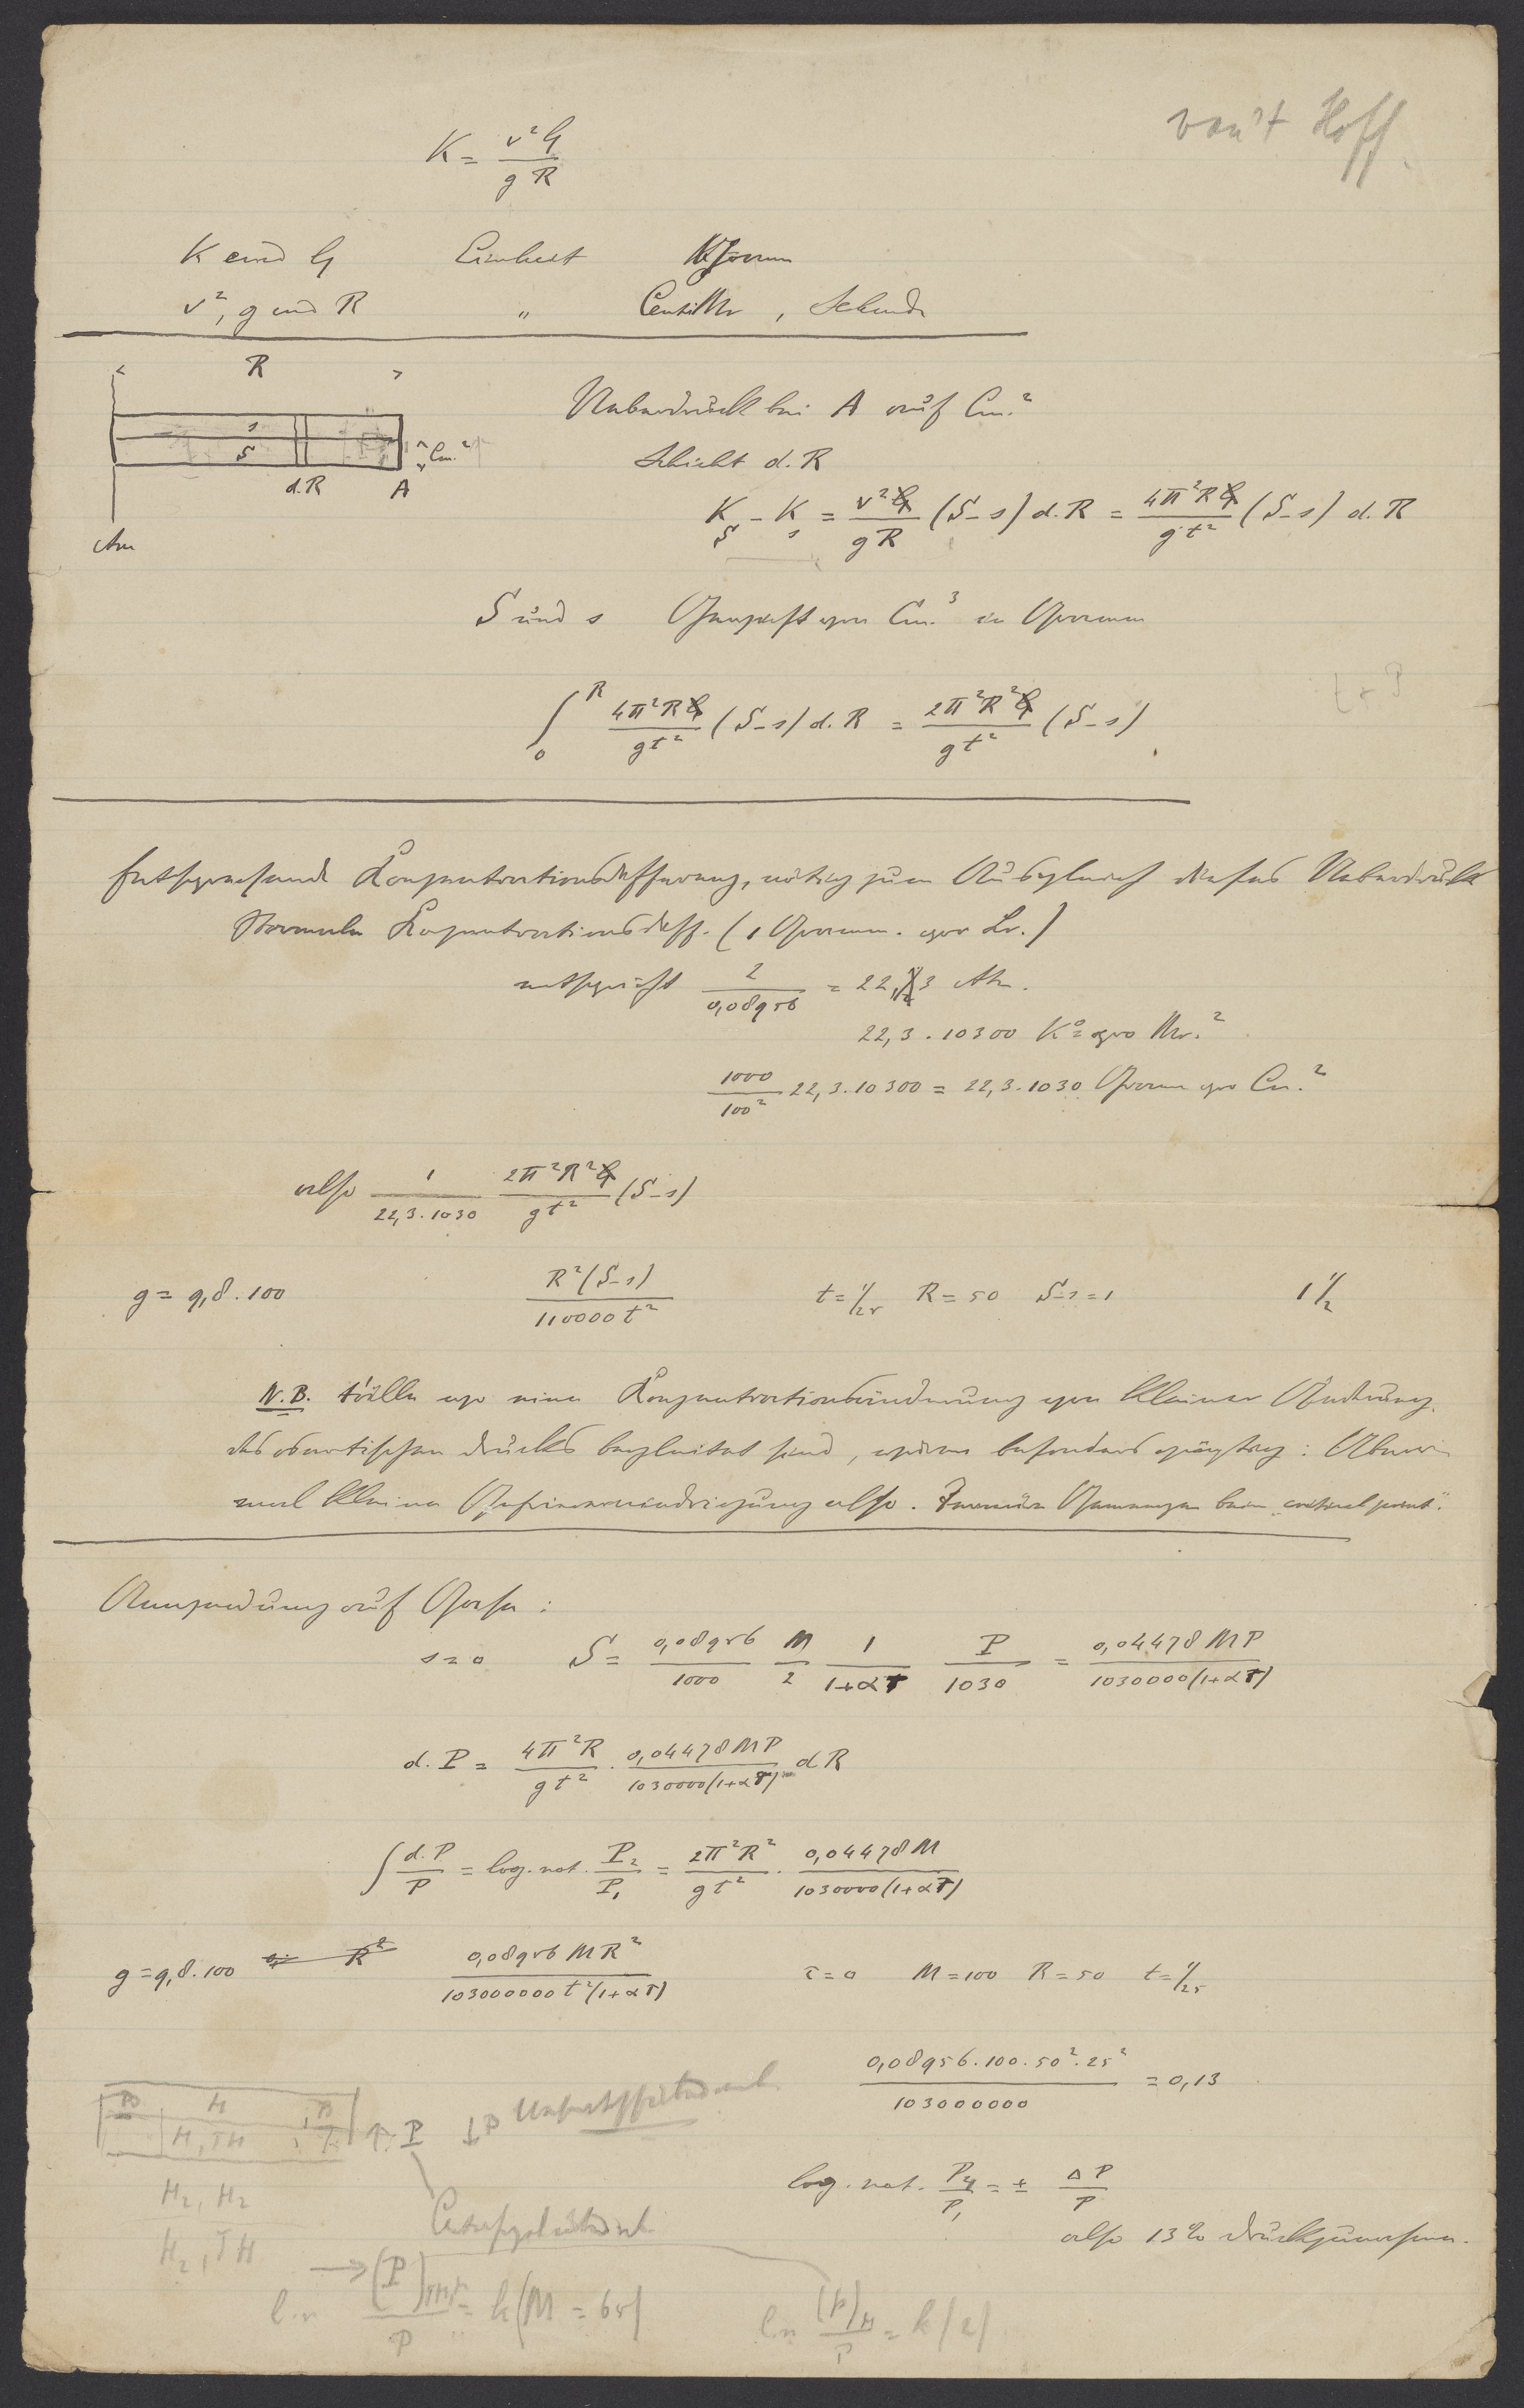 van't Hoff.
K = v²G / gR
K und G Einheit KGramm
v², g und R " CentiMr, Sekunde
R
s
S
Cm.²
d.R A
Axe
Ueberdruck bei A auf Cm.²
Schicht d.R
K_S - K_s = v²G / gR (S-s) d.R = 4π²RG / gt² (S-s) d.R
S und s Gewicht von Cm.³ in Gramm
∫₀ᴿ 4π²RG / gt² (S-s) d.R = 2π²R²G / gt² (S-s)
Entsprechende Konzentrationsdifferenz, nötig zum Ausgleich dieses Ueberdruck
Normale Konzentrationsdiff. (1 Gramm. pro Lr.)
entspricht 2 / 0,08956 = 22,3 Atm.
22,3 . 10300 K° pro Mr.²
1000 / 100² 22,3.10300 = 22,3.1030 Gramm pro Cm.²
also 1 / 22,3.1030 2π²R²G / gt² (S-s)
g = 9,8.100 R²(S-s) / 110000 t² t = 1/25 R = 50 S-s = 1 1 1/2
N.B. Fälle wo eine Konzentrationsänderung von kleiner Änderung
des osmotischen Drucks begleitet sind, wären besonders günstig:
mal kleine Gefrierserniedrigung also. Gemengen beim "critical point".
Anwendung auf Gase:
s = 0 S = 0,08956 / 1000 M / 2 1 / 1+αT P / 1030 = 0,04478 MP / 1030000(1+αT)
d.P = 4π²R / gt² . 0,04478 MP / 1030000(1+αT) dR
∫ d.P / P = log.nat. P₂ / P₁ = 2π²R² / gt² . 0,04478 M / 1030000(1+αT)
g = 9,8.100 R² 0,08956 MR² / 103000000 t²(1+αT) τ = 0 M = 100 R = 50 t = 1/25
0,08956.100.50².25² / 103000000 = 0,13
log.nat. P₂ / P₁ = ± ΔP / P
also 13% Druckzunahme.
H
H, TH
↑ P ↓P
H₂, H₂
H₂, TH
→ (P)
ln P = k(M = 65)
ln (P)H / P = k(2)